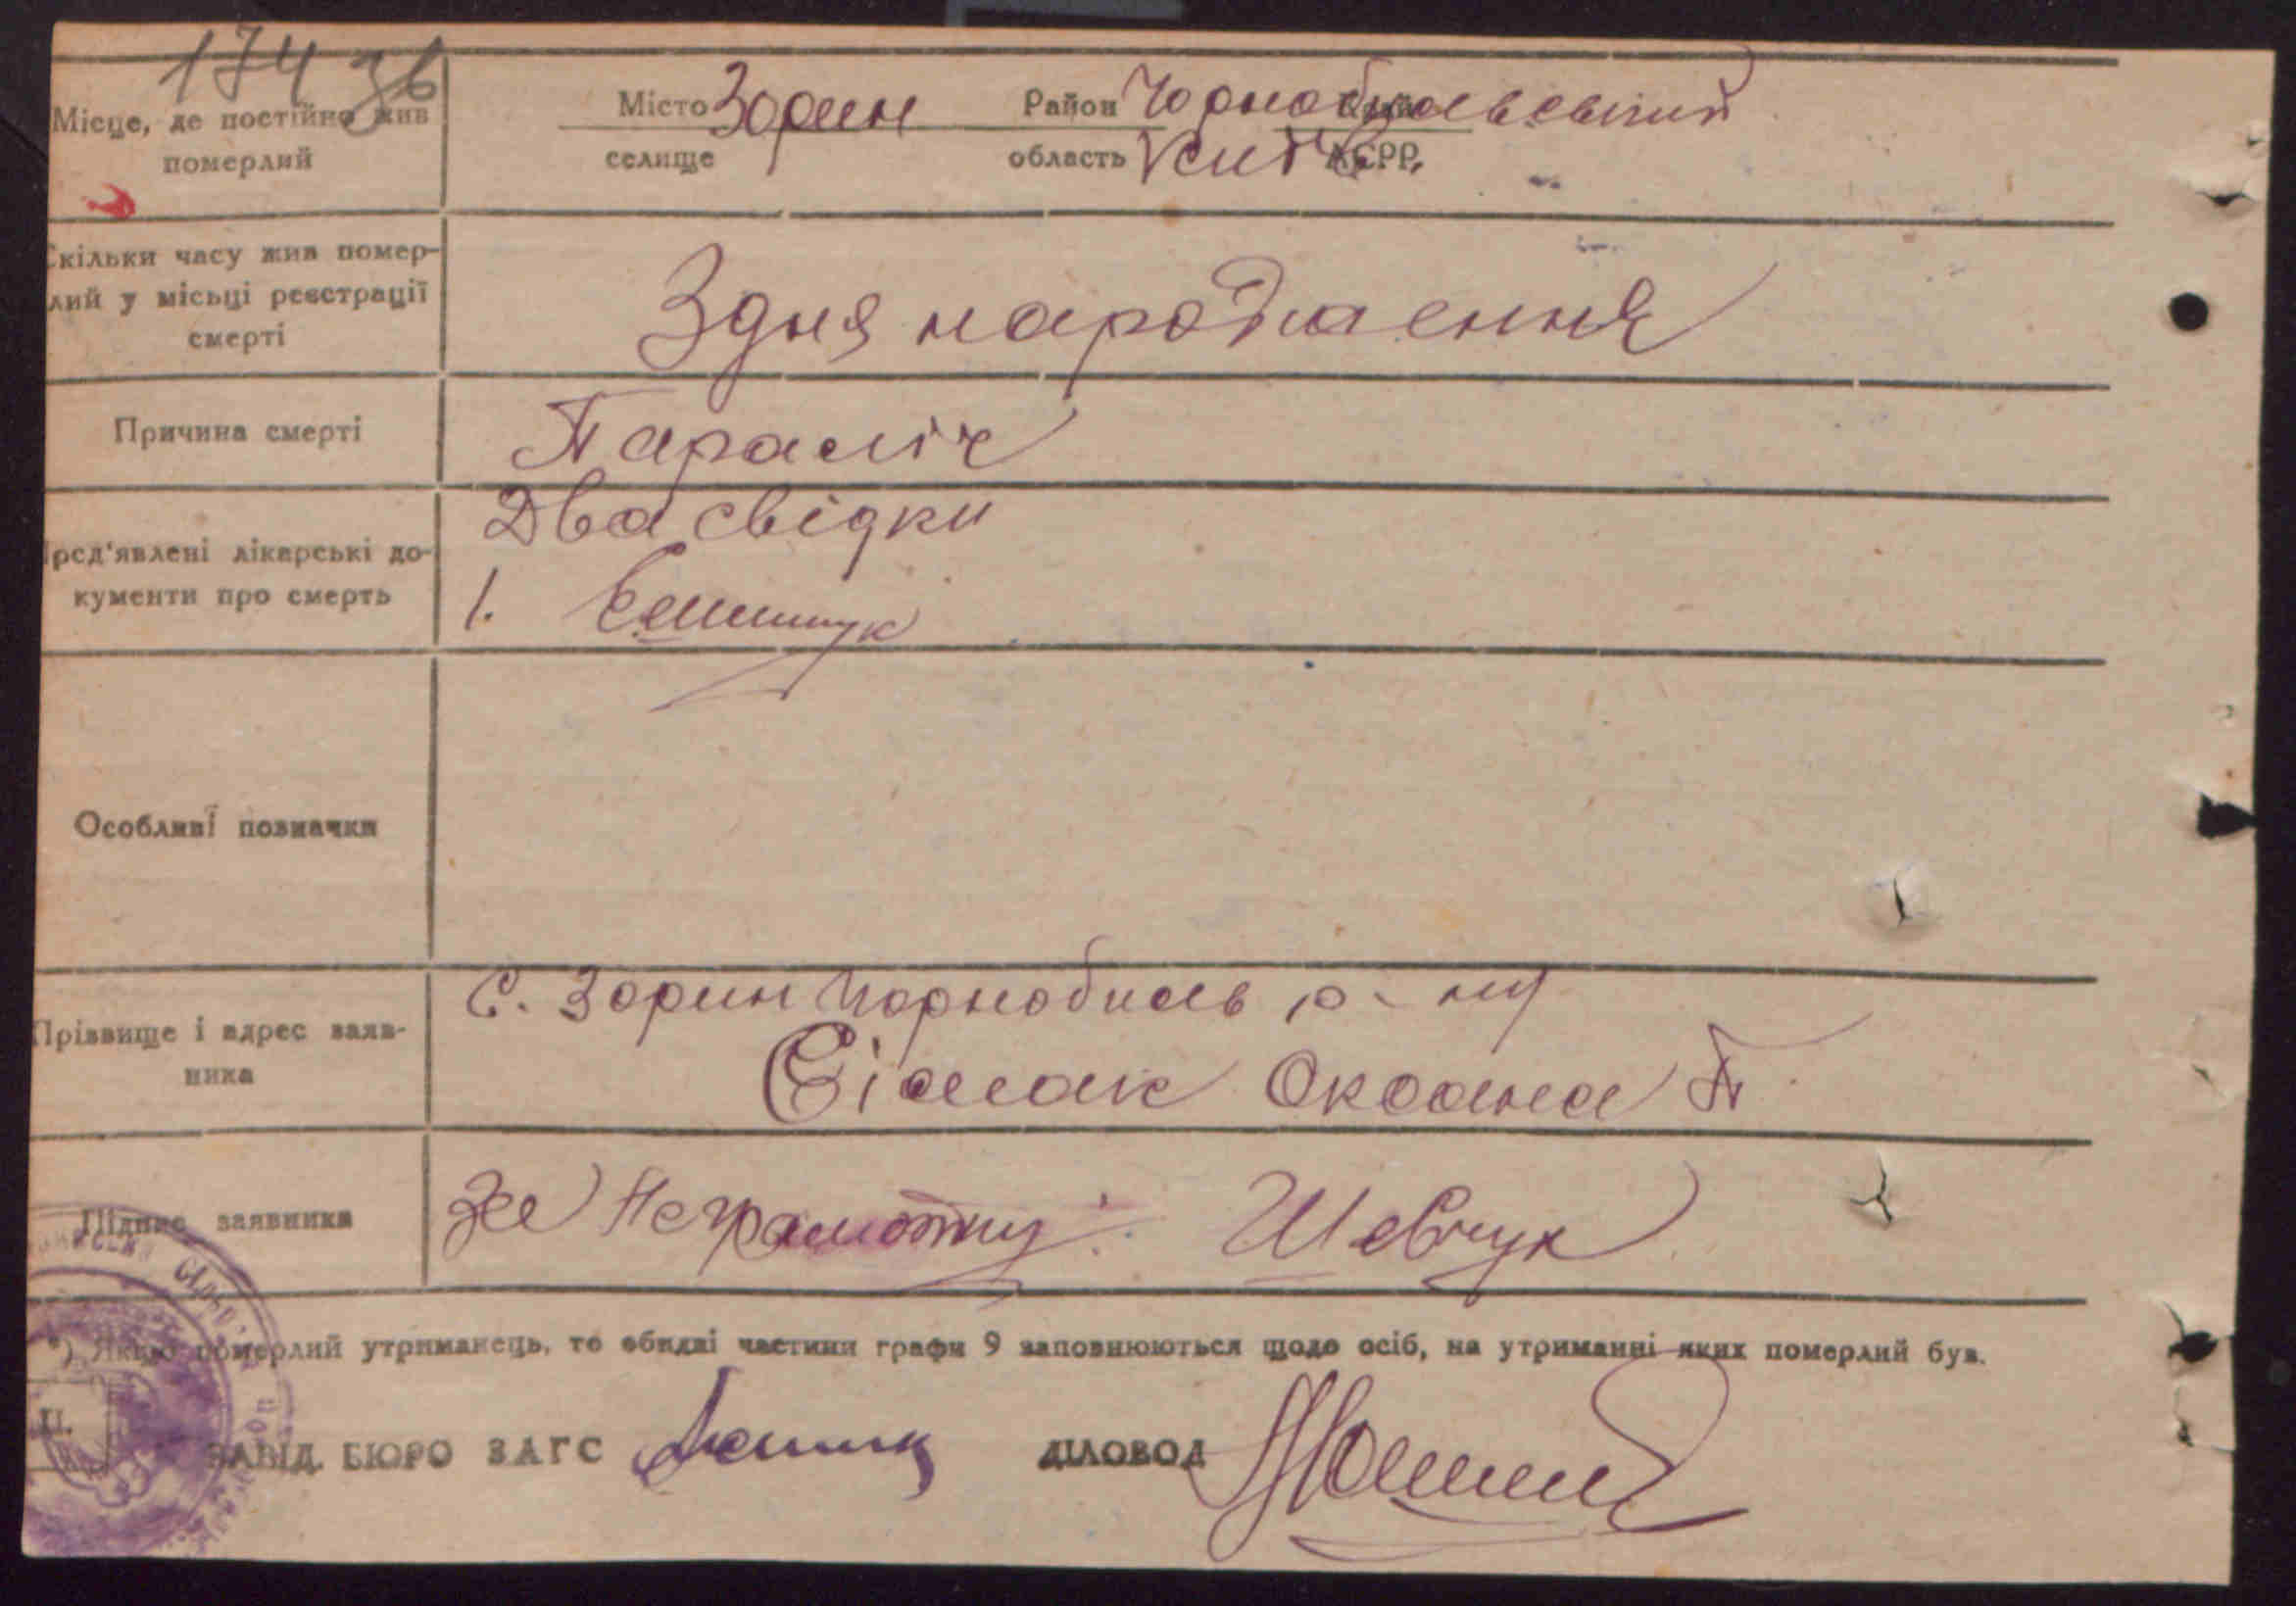 174 зв
Місце, де постійно жив померлий
Місто Зорин Район Чорнобильський
селище область Київ АСРР.
Скільки часу жив помер-
лий у місьці реєстрації
смерті
З дня народження
Причина смерті
Параліч
Пред'явлені лікарські до-
кументи про смерть
Два свідки
1.
Особливї позначки
Прізвище і адрес заяв-
ника
С. Зорин Чорнобиль р-ну
Сіалак Оксана П.
Підпис заявника
За Неграмотну: Шевчук
*) Якщо померлий утриманець, то обидві частини графи 9 заповнюються щодо осіб, на утриманні яких померлий був.
ЗАВІД. БЮРО ЗАГС
ДІЛОВОД